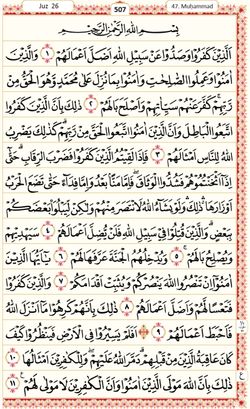 Juz 26
507
47. Muhammad
بِسْمِ اللّٰهِ الرَّحْمٰنِ الرَّحِيْمِ
اَلَّذِيْنَ كَفَرُوْا وَصَدُّوْا عَنْ سَبِيْلِ اللّٰهِ اَضَلَّ اَعْمَالَهُمْ ١ وَالَّذِيْنَ
اٰمَنُوْا وَعَمِلُوا الصّٰلِحٰتِ وَاٰمَنُوْا بِمَا نُزِّلَ عَلٰى مُحَمَّدٍ وَّهُوَ الْحَقُّ مِنْ
رَّبِّهِمْ كَفَّرَ عَنْهُمْ سَيِّاٰتِهِمْ وَاَصْلَحَ بَالَهُمْ ٢ ذٰلِكَ بِاَنَّ الَّذِيْنَ كَفَرُوا
اتَّبَعُوا الْبَاطِلَ وَاَنَّ الَّذِيْنَ اٰمَنُوا اتَّبَعُوا الْحَقَّ مِنْ رَّبِّهِمْ كَذٰلِكَ يَضْرِبُ
اللّٰهُ لِلنَّاسِ اَمْثَالَهُمْ ٣ فَاِذَا لَقِيْتُمُ الَّذِيْنَ كَفَرُوْا فَضَرْبَ الرِّقَابِ حَتّٰٓى
اِذَآ اَثْخَنْتُمُوْهُمْ فَشُدُّوا الْوَثَاقَ فَاِمَّا مَنًّا بَعْدُ وَاِمَّا فِدَآءً حَتّٰى تَضَعَ الْحَرْبُ
اَوْزَارَهَا ذٰلِكَ وَلَوْ يَشَآءُ اللّٰهُ لَانْتَصَرَ مِنْهُمْ وَلٰكِنْ لِّيَبْلُوَا۟ بَعْضَكُمْ
بِبَعْضٍ وَالَّذِيْنَ قُتِلُوْا فِيْ سَبِيْلِ اللّٰهِ فَلَنْ يُّضِلَّ اَعْمَالَهُمْ ٤ سَيَهْدِيْهِمْ
وَيُصْلِحُ بَالَهُمْ ٥ وَيُدْخِلُهُمُ الْجَنَّةَ عَرَّفَهَا لَهُمْ ٦ يٰٓاَيُّهَا الَّذِيْنَ
اٰمَنُوْٓا اِنْ تَنْصُرُوا اللّٰهَ يَنْصُرْكُمْ وَيُثَبِّتْ اَقْدَامَكُمْ ٧ وَالَّذِيْنَ كَفَرُوْا
فَتَعْسًا لَّهُمْ وَاَضَلَّ اَعْمَالَهُمْ ٨ ذٰلِكَ بِاَنَّهُمْ كَرِهُوْا مَآ اَنْزَلَ اللّٰهُ
فَاَحْبَطَ اَعْمَالَهُمْ ٩ اَفَلَمْ يَسِيْرُوْا فِى الْاَرْضِ فَيَنْظُرُوْا كَيْفَ
كَانَ عَاقِبَةُ الَّذِيْنَ مِنْ قَبْلِهِمْ دَمَّرَ اللّٰهُ عَلَيْهِمْ وَلِلْكٰفِرِيْنَ اَمْثَالُهَا ١٠
ذٰلِكَ بِاَنَّ اللّٰهَ مَوْلَى الَّذِيْنَ اٰمَنُوْا وَاَنَّ الْكٰفِرِيْنَ لَا مَوْلٰى لَهُمْ ١١